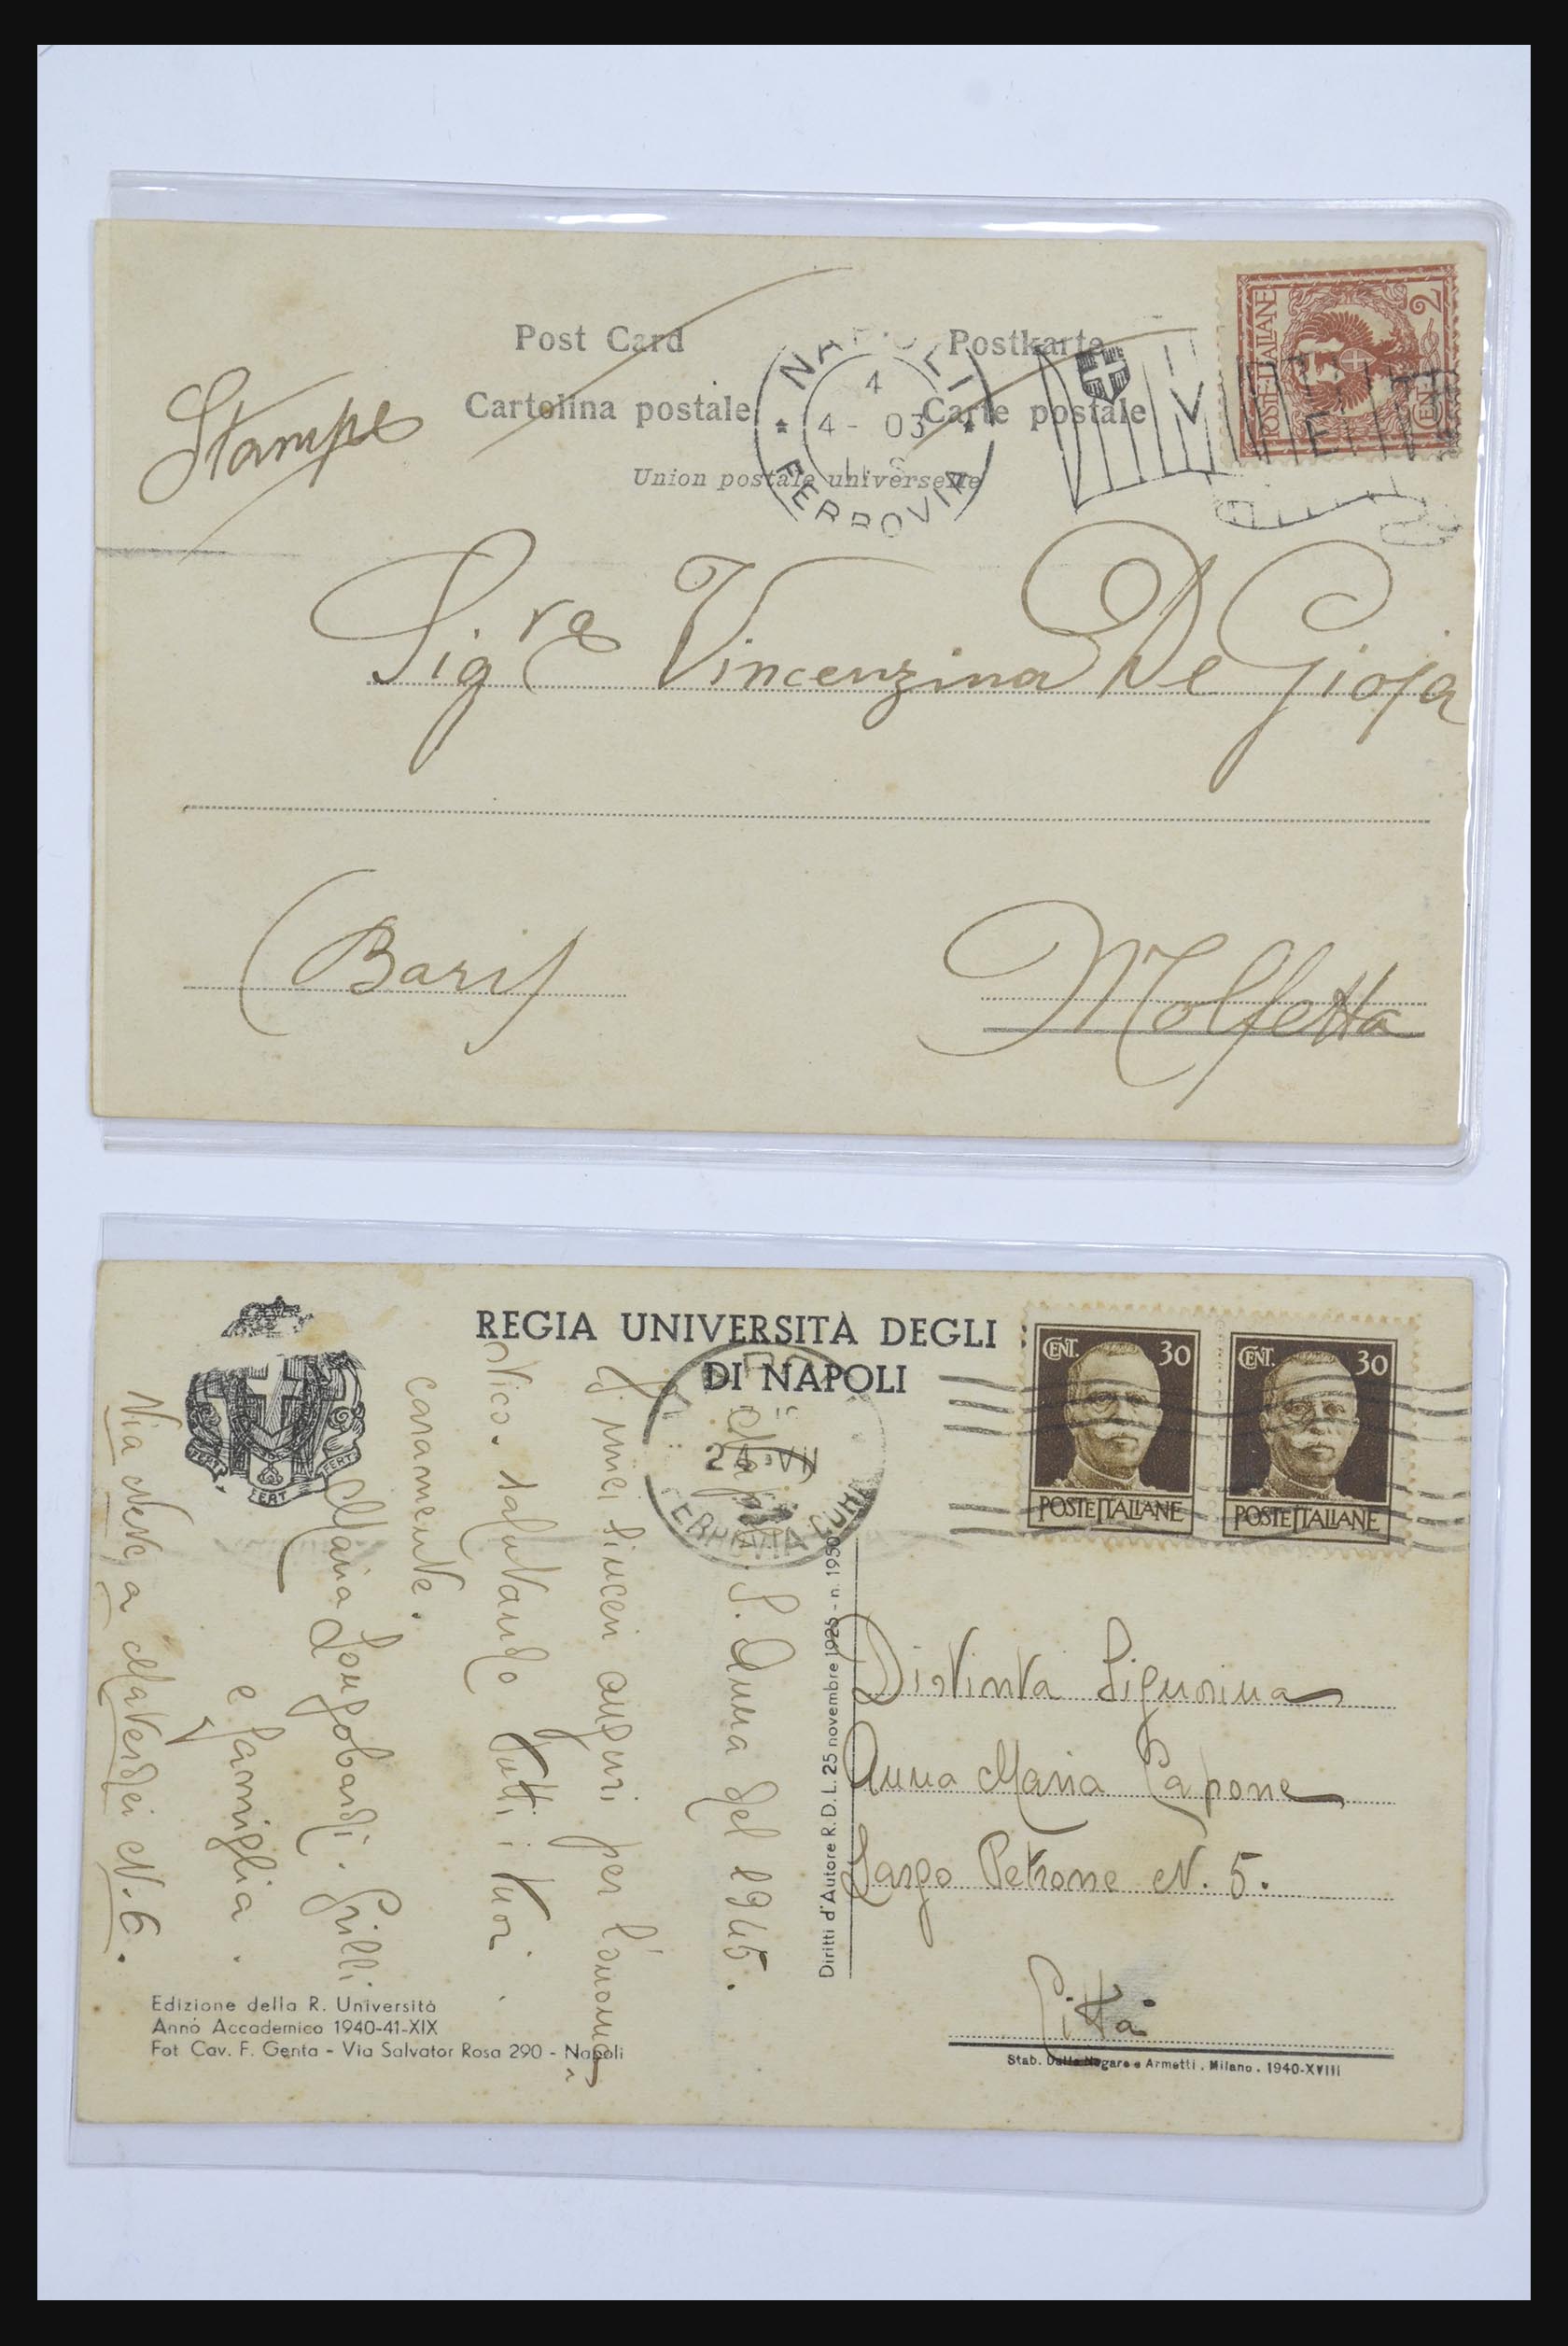 Post Card
Postkarte
Cartolina postale
Carte postale
Union postale universelle
Stampe
NAPOLI
4
4 - 03
FERROVIA
POSTE ITALIANE
CENT. 2
Sig.ra Vincenzina De Gioja
(Bari)
Molfetta
REGIA UNIVERSITÀ DEGLI
DI NAPOLI
FERT FERT FERT
CENT. 30
POSTE ITALIANE
CENT. 30
POSTE ITALIANE
24 VII
FERROVIA
Napoli. S. Anna del 1945.
I miei sinceri auguri per l'onoma
stico. salutando tutti i tuoi.
caramente.
Maria Longobardi. Grilli
e famiglia.
Via Neve a Materdei N. 6.
Diritti d'Autore R. D. L. 25 novembre 1925 - n. 1950
Distinta Signorina
Anna Maria Capone
Largo Petrone N. 5.
Città
Edizione della R. Università
Anno Accademico 1940-41-XIX
Fot Cav. F. Genta - Via Salvator Rosa 290 - Napoli
Stab. Dalle Nogare e Armetti . Milano . 1940-XVIII